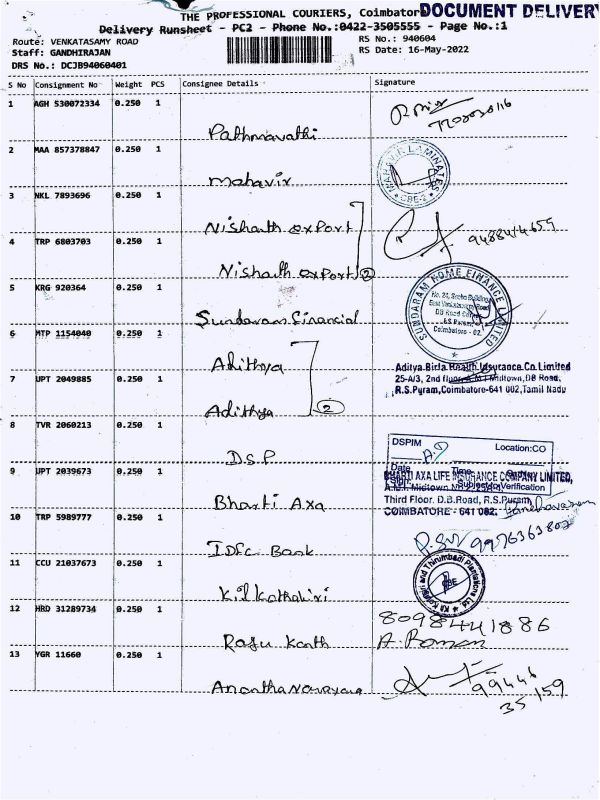 THE PROFESSIONAL COURIERS, Coimbator DOCUMENT DELIVERY
Delivery Runsheet - PC2 - Phone No.:0422-3505555 - Page No.:1
Route: VENKATASAMY ROAD
RS No.: 940604
Staff: GANDHIRAJAN
RS Date: 16-May-2022
DRS No.: DCJB94060401
S No Consignment No Weight PCS Consignee Details Signature
1 AGH 530072334 0.250 1
Pathmavathi
2 MAA 857378847 0.250 1
mahavir
MAHAVIR LAMINATES
CBE-2
3 NKL 7893696 0.250 1
Nishanth export
4 TRP 6803703 0.250 1
Nishanth export 2
5 KRG 920364 0.250 1
Sundaram financial
SUNDARAM HOME FINANCE LIMITED
Coimbatore - 02.
6 MTP 1154040 0.250 1
Adithya
Aditya Birla Health Insurance Co. Limited
25-A/3, 2nd floor, Midtown, DB Road,
R.S.Puram, Coimbatore-641 002, Tamil Nadu
7 UPT 2049885 0.250 1
Adithya 2
8 TVR 2060213 0.250 1
DSP
DSPIM Location:CO
Date Time
Subject to Verification
9 UPT 2039673 0.250 1
Bharti Axa
BHARTI AXA LIFE INSURANCE COMPANY LIMITED,
Third Floor. D.B.Road, R.S.Puram,
COIMBATORE - 641 002.
10 TRP 5989777 0.250 1
IDFC Bank
9976363802
11 CCU 21037673 0.250 1
Kil Kothahiri
Kil Kotagiri and Thirumbadi Plantations Ltd.
CBE
12 HRD 31289734 0.250 1
Raju Kanth
8098441886
A. Raman
13 YGR 11660 0.250 1
Anantha Narayana
99446
35 159